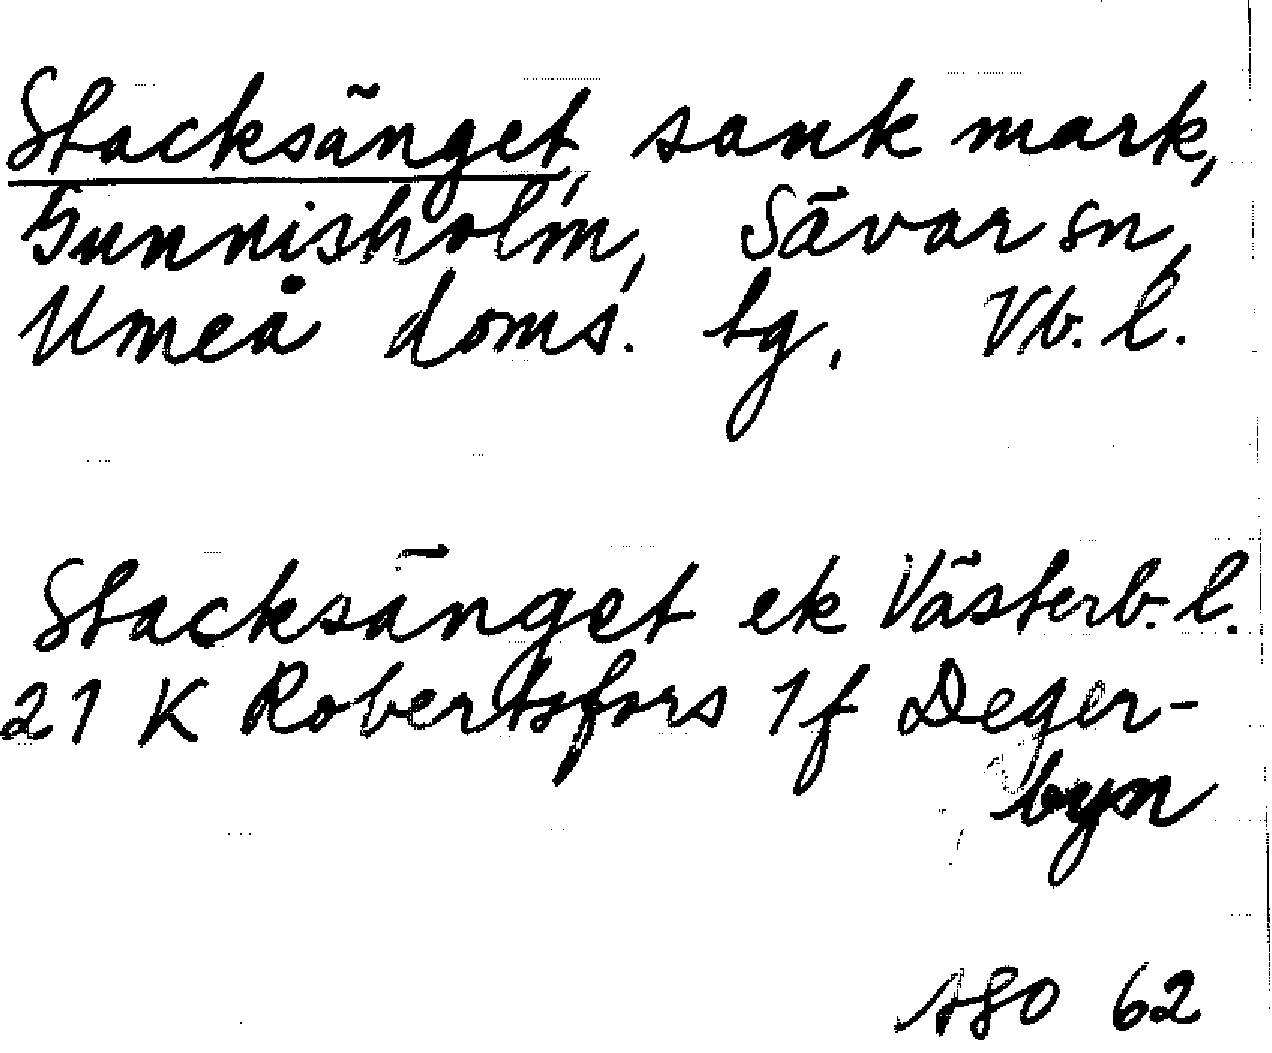 Stacksänget, sank mark,
Gunnisholm, Sävar sn,
Umeå doms. tg, Vb. l.
Stacksänget ek Västerb. l.
21 K Robertsfors 1f Deger-
byn
62